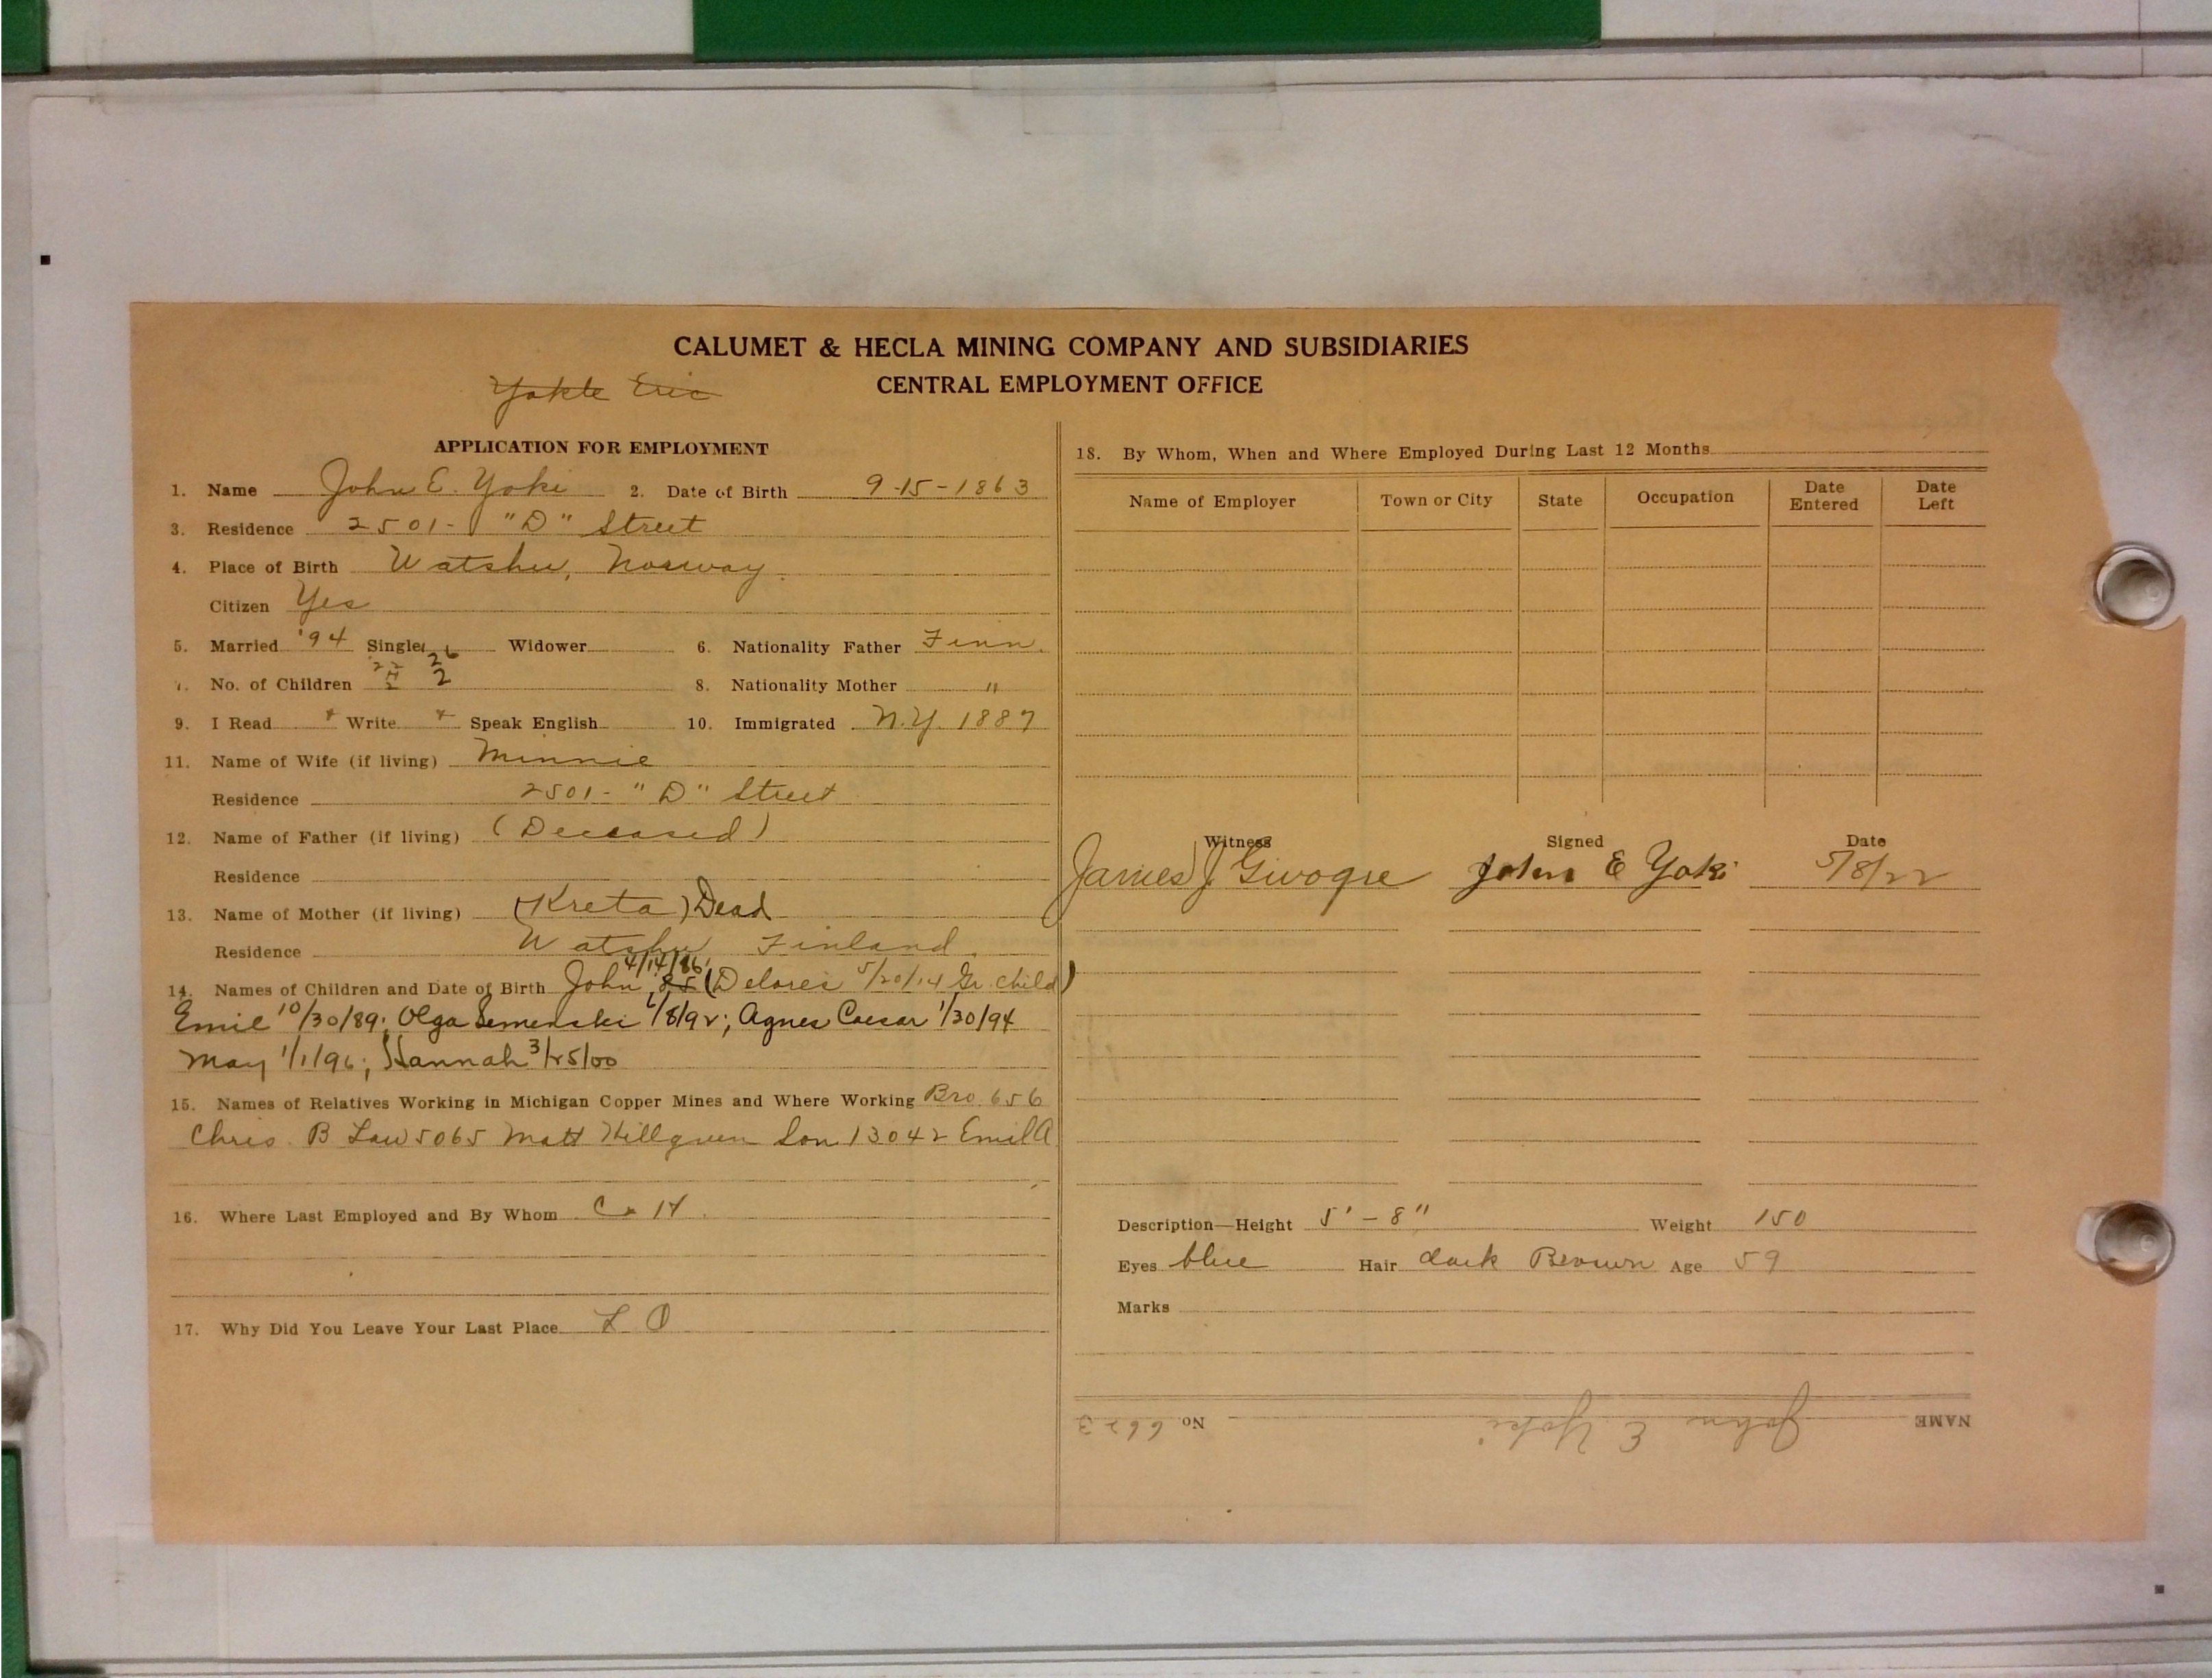 CALUMET & HECLA MINING COMPANY AND SUBSIDIARIES
CENTRAL EMPLOYMENT OFFICE
Yokte Eric
APPLICATION FOR EMPLOYMENT
1. Name John E. Yoki 2. Date of Birth 9-15-1863
3. Residence 2501- "D" Street
4. Place of Birth Watshu, Norway.
Citizen Yes
5. Married '94 Single Widower 6. Nationality Father Finn.
7. No. of Children 22 26 2 8. Nationality Mother "
9. I Read Write Speak English 10. Immigrated N.Y. 1887
11. Name of Wife (if living) Minnie
Residence 2501- "D" Street
12. Name of Father (if living) (Deceased)
Residence
13. Name of Mother (if living) (Kreta) Dead
Residence Watshu Finland
14. Names of Children and Date of Birth John 4/14/86 85 (Delores 5/20/14 Gr. child)
Emil 10/30/89; Olga Semenski 6/8/92; Agnes Caesar 1/30/94
May 1/1/96; Hannah 3/25/00
15. Names of Relatives Working in Michigan Copper Mines and Where Working Bro. 656
Chris. B Law 5065 Matt Hillgren Son 13042 Emil A
16. Where Last Employed and By Whom C & H.
17. Why Did You Leave Your Last Place L O
18. By Whom, When and Where Employed During Last 12 Months
Name of Employer Town or City State Occupation Date Entered Date Left
Witness Signed Date
James J John E Yoki 5/8/22
Description—Height 5' - 8" Weight 150
Eyes blue Hair dark Brown Age 59
Marks
NAME John E Yoki No 6623